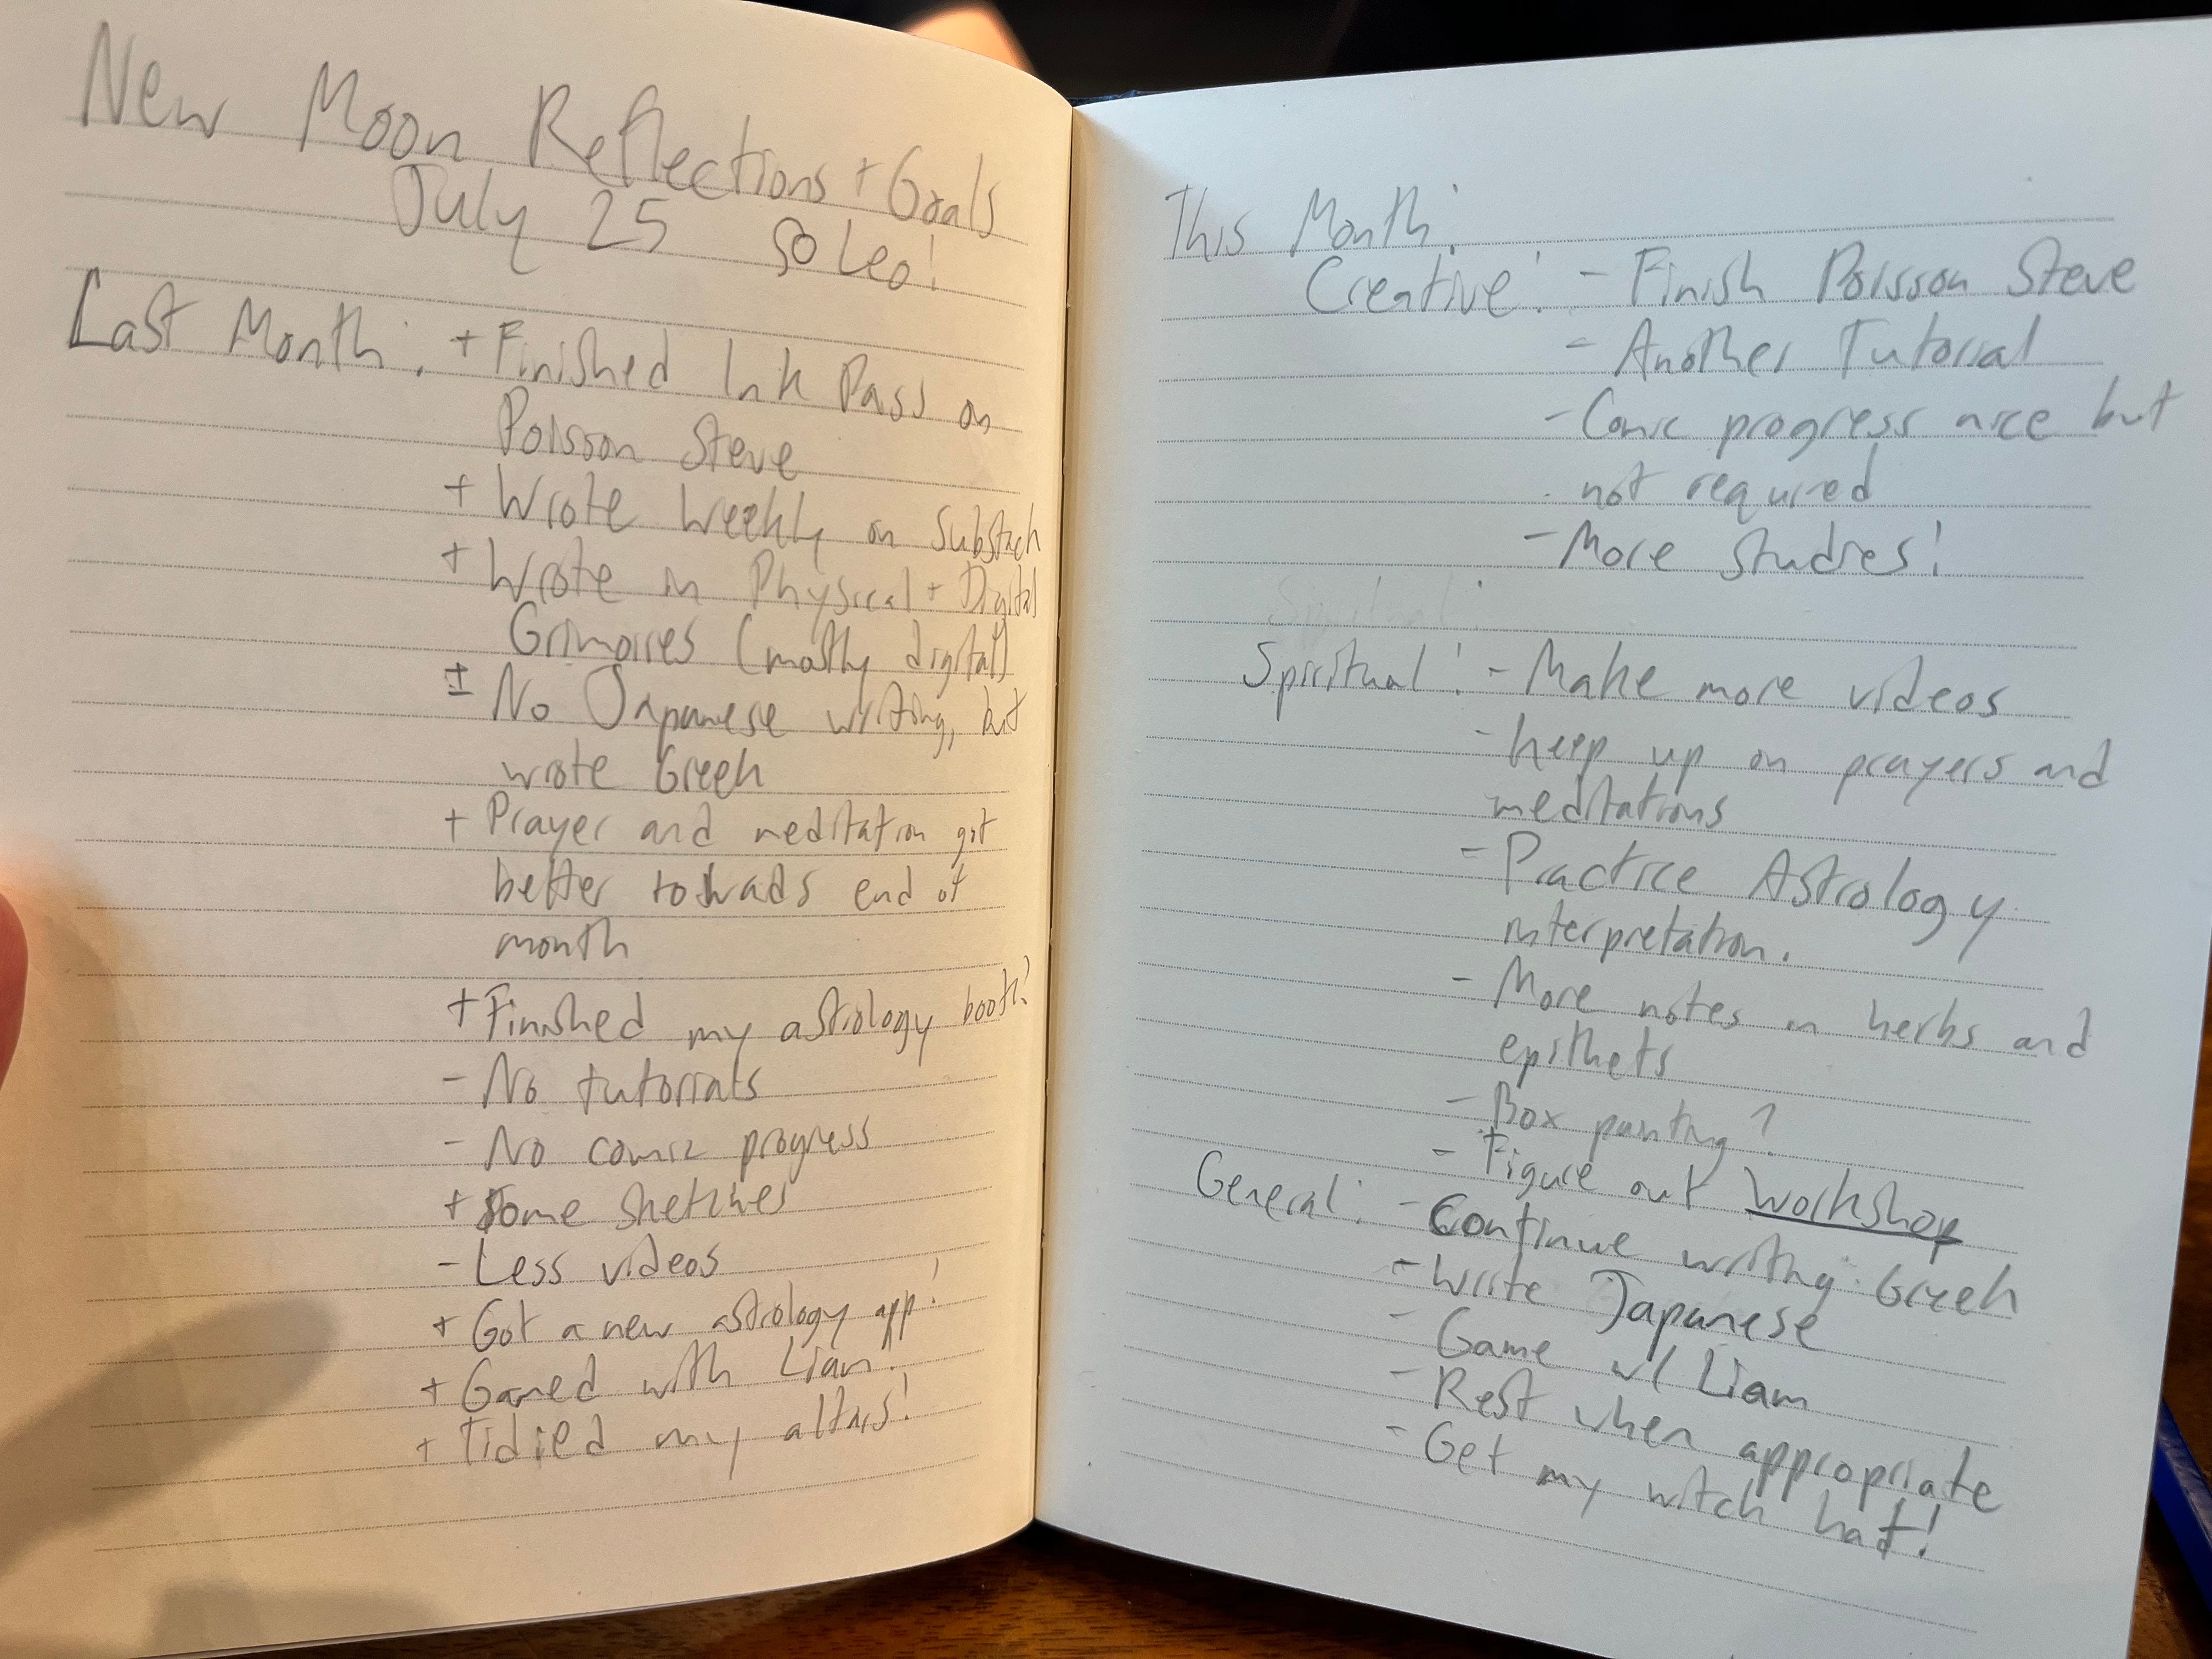 New Moon Reflections + Goals
July 25 so Leo!
Last Month: + Finished Ink Pass on
Poisson Steve
+ Wrote weekly on Substack
+ Wrote in Physical + Digital
Grimoires (mostly digital)
± No Japanese writing, but
wrote Greek
+ Prayer and meditation got
better towards end of
month
+ Finished my astrology book?
- No tutorials
- No comic progress
+ Some sketches
- Less videos
+ Got a new astrology app!
+ Gamed with Liam!
+ Tidied my altars!
This Month:
Creative: - Finish Poisson Steve
- Another Tutorial
- Comic progress nice but
not required
- More studies!
Spiritual:
Spiritual: - Make more videos
- keep up on prayers and
meditations
- Practice Astrology
interpretation.
- More notes on herbs and
epithets
- Box painting?
- Figure out workshop
General: - Continue writing Greek
- Write Japanese
- Game w/ Liam
- Rest when appropriate
- Get my witch hat!